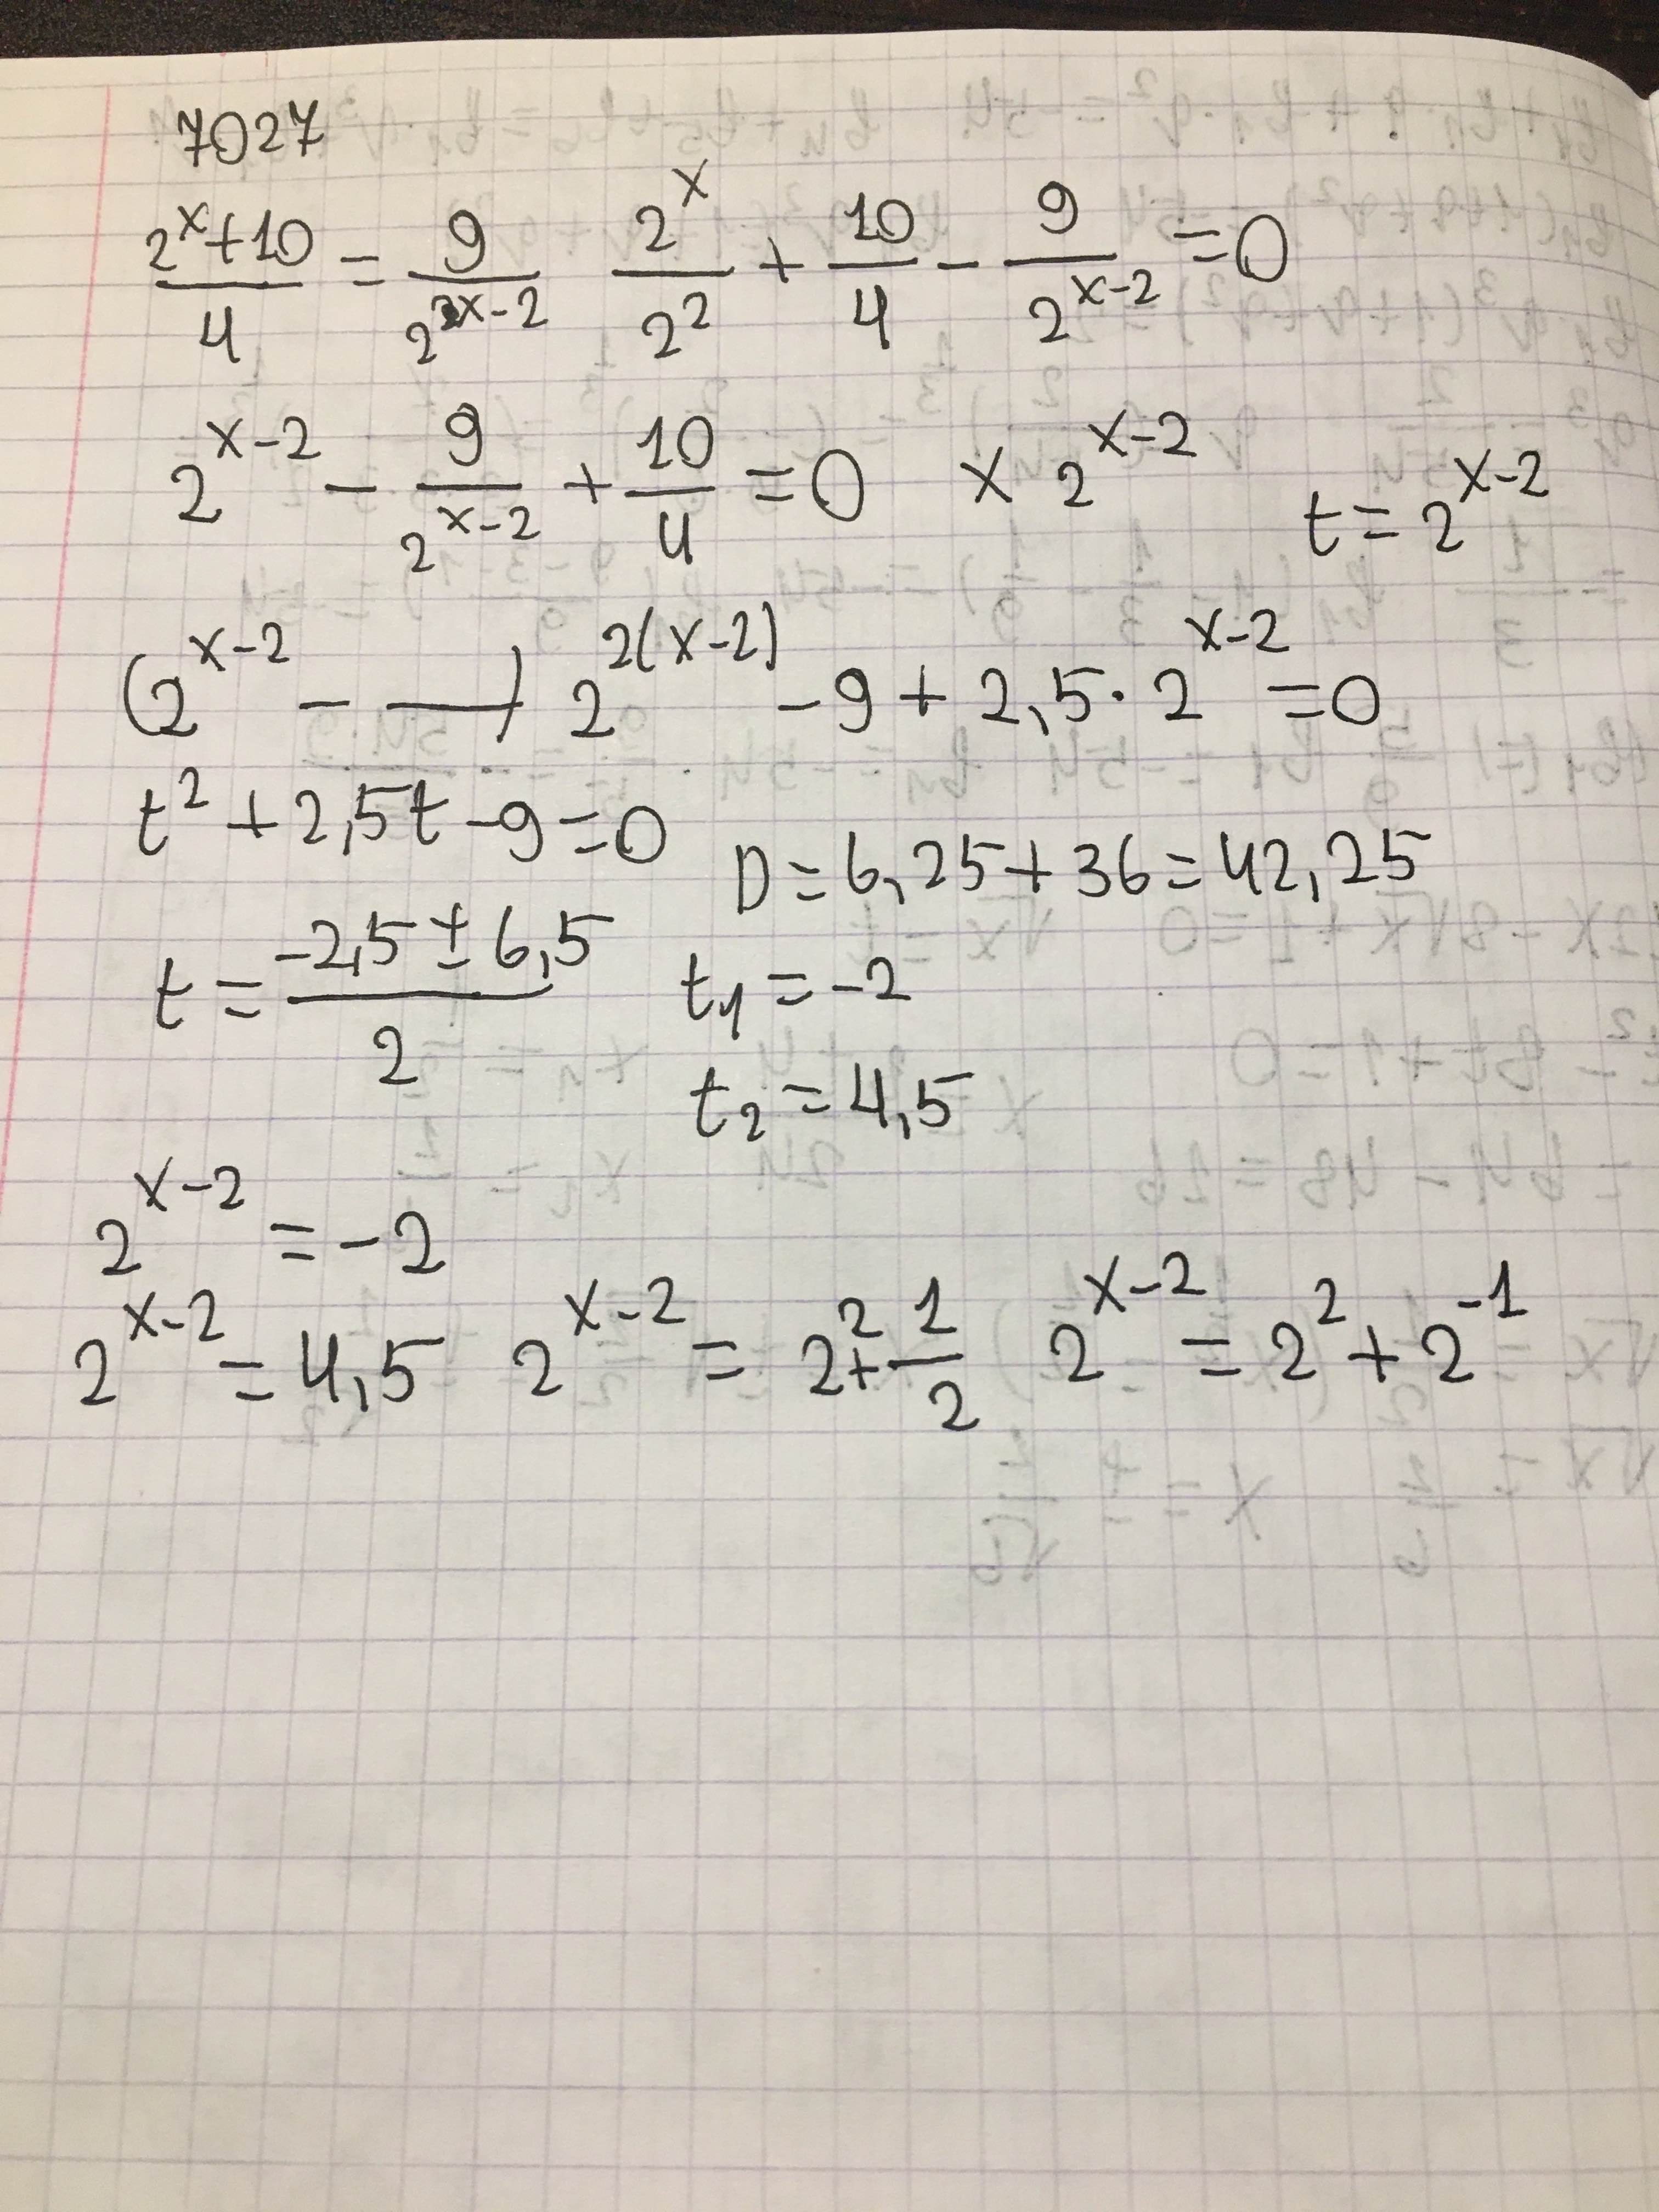 7027
(2^x+10)/4 = 9/2^(x-2)   2^x/2^2 + 10/4 - 9/2^(x-2) = 0
2^(x-2) - 9/2^(x-2) + 10/4 = 0   × 2^(x-2)   t = 2^(x-2)
(2^(x-2) - —) 2^(2(x-2)) - 9 + 2,5 · 2^(x-2) = 0
t² + 2,5t - 9 = 0   D = 6,25 + 36 = 42,25
t = (-2,5 ± 6,5)/2   t₁ = -2
t₂ = 4,5
2^(x-2) = -2
2^(x-2) = 4,5   2^(x-2) = 2² + 1/2   2^(x-2) = 2² + 2^(-1)